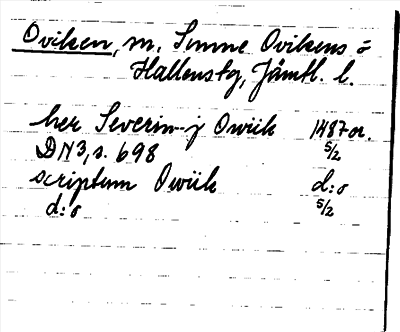 Oviken, m. Sunne Ovikens o
Hallens tg, Jämtl. l.
her Severin j Owiik 1487 or.
DN 3, s. 698 5/2
scriptum Owiik d:o
d:o 5/2